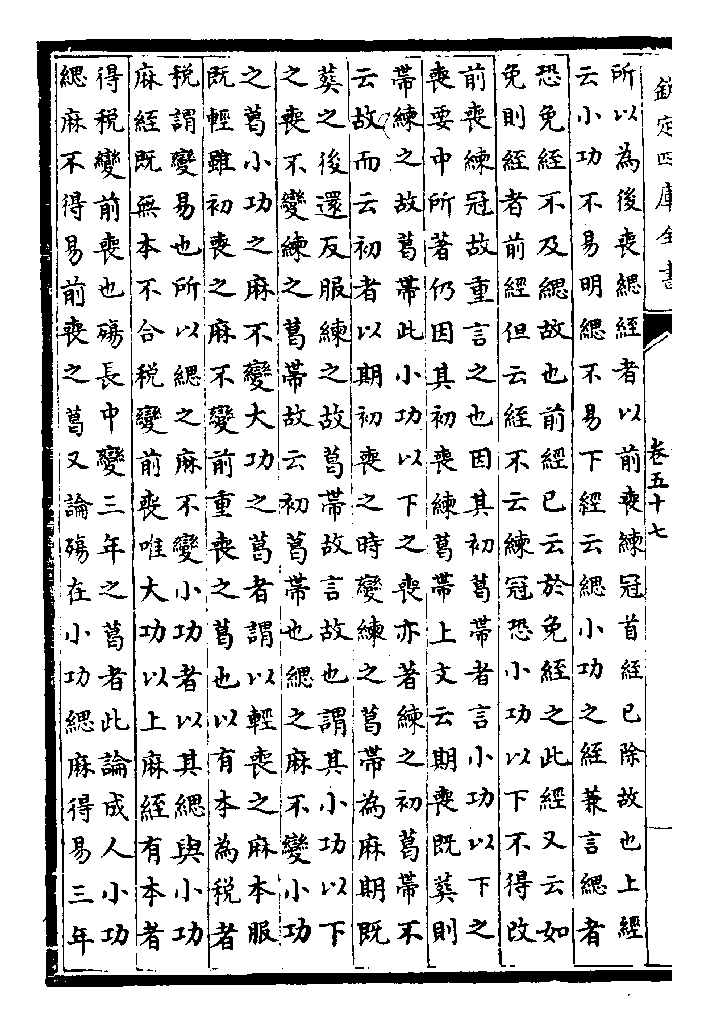 欽定四庫全書
卷五十七
所以為後喪緦絰者以前喪練冠首絰已除故也上經
云小功不易明緦不易下經云緦小功之絰兼言緦者
恐免絰不及緦故也前經已云於免絰之此經又云如
免則絰者前經但云絰不云練冠恐小功以下不得改
前喪練冠故重言之也因其初葛帶者言小功以下之
喪要中所著仍因其初喪練葛帶上文云期喪既葬則
帶練之故葛帶此小功以下之喪亦著練之初葛帶不
云故而云初者以期初喪之時變練之葛帶為麻期既
葬之後還反服練之故葛帶故言故也謂其小功以下
之喪不變練之葛帶故云初葛帶也緦之麻不變小功
之葛小功之麻不變大功之葛者謂以輕喪之麻本服
既輕雖初喪之麻不變前重喪之葛也以有本為税者
税謂變易也所以緦之麻不變小功者以其緦與小功
麻絰既無本不合税變前喪唯大功以上麻絰有本者
得税變前喪也殤長中變三年之葛者此論成人小功
緦麻不得易前喪之葛又論殤在小功緦麻得易三年